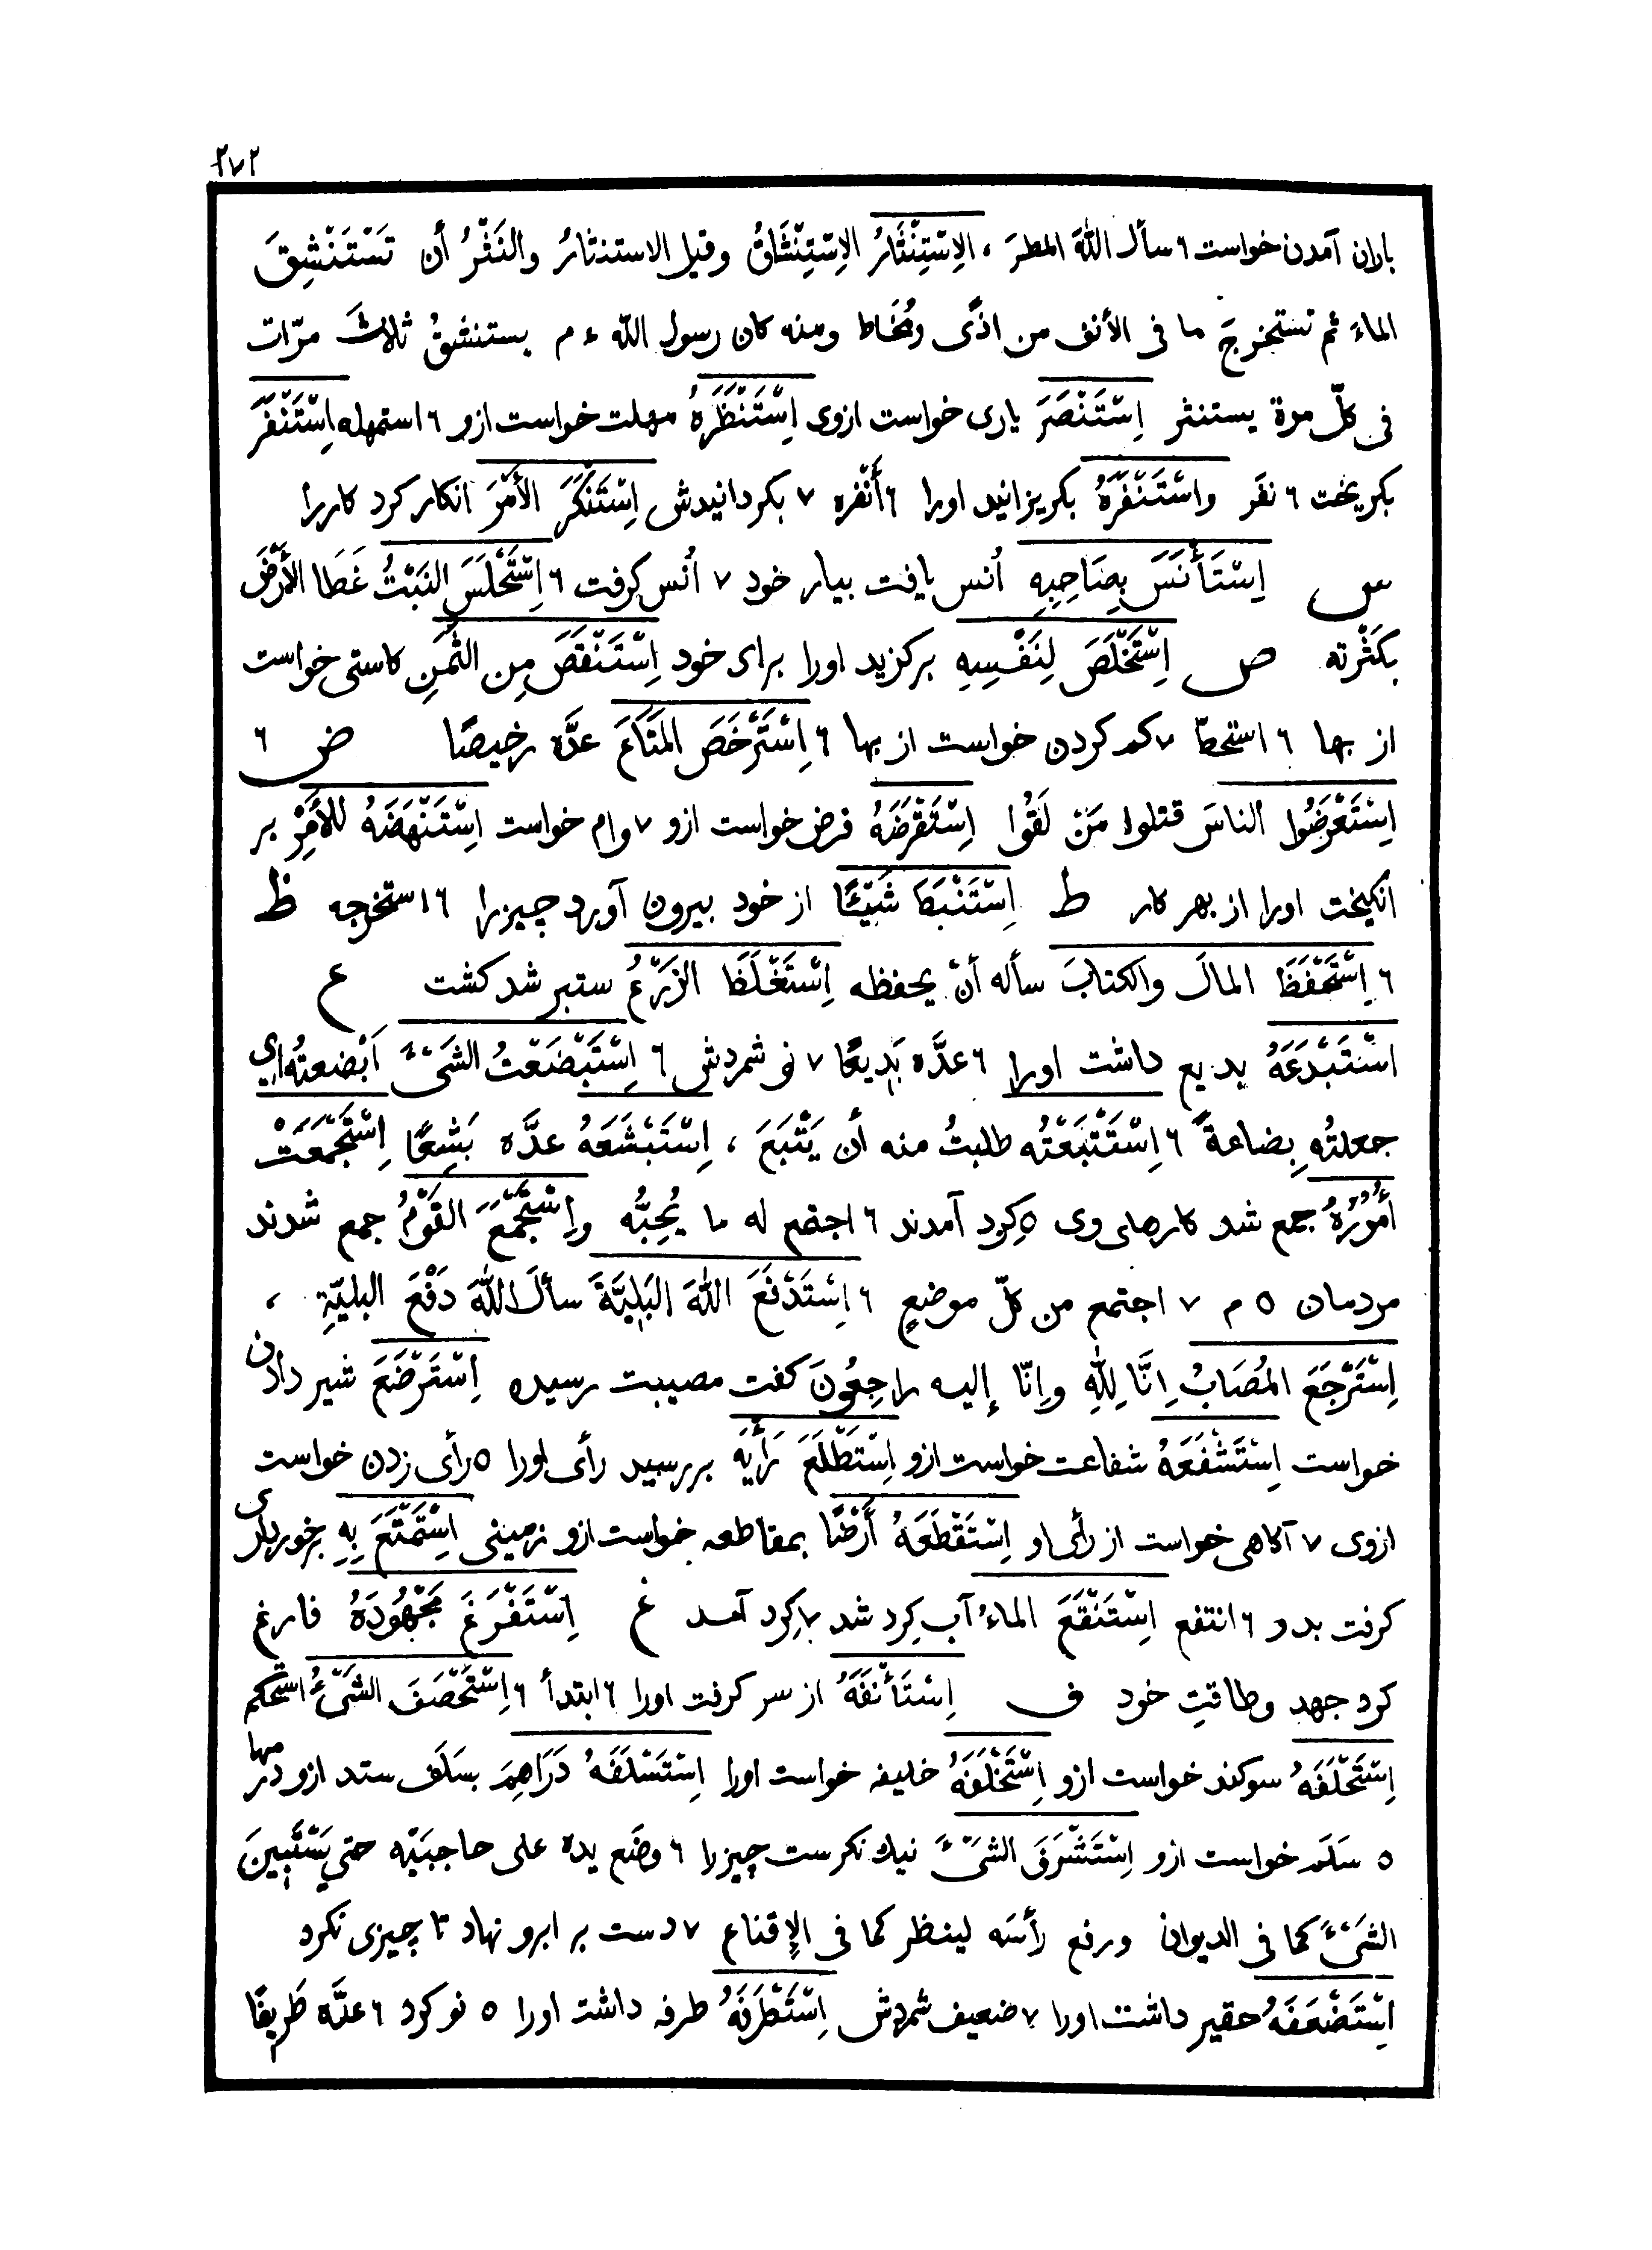 ٢٧٢
باران آمدن خواست ٦ سأل اللّٰهَ المطرَ ، الاِسْتِنْثَارُ الاِسْتِنْشَاقُ وقيل الاستنثارُ والنَثْرُ أن تَسْتَنْشِقَ
الماءَ ثم تستخرجَ ما فى الأنف من اذًى ومُخَاط ومنه كان رسول اللّٰه ءم يستنشقُ ثلاثَ مرّات
فى كلّ مرة يستنثر اِسْتَنْصَرَ يارى خواست ازوى اِسْتَنْظَرَهُ مهلت خواست ازو ٦ استمهله اِسْتَنْفَرَ
بكريخت ٦ نفَر واسْتَنْفَرَهُ بكريزانيد اورا ٦ أَنْفره ٧ بكردانيدش اِسْتَنْكَرَ الأَمْرَ انكار كرد كاررا
س اِسْتَأْنَسَ بِصَاحِبِهِ أنس يافت بيار خود ٧ أنس كرفت ٦ اِسْتَحْلَسَ النَبْتُ غَطَا الأَرْضَ
بكَثْرته ص اِسْتَخْلَصَ لِنَفْسِهِ بركزيد اورا براى خود اِسْتَنْقَصَ مِن الثَمَنِ كاستى خواست
از بها ٦ استحطّ ٧ كم كردن خواست از بها ٦ اِسْتَرْخَصَ المَتَاعَ عدَّه رخيصًا ض ٦
اِسْتَعْرَضُوا الناسَ قتلوا مَنْ لَقُوا اِسْتَقْرَضَهُ قرض خواست ازو ٧ وام خواست اِسْتَنْهَضَهُ للأَمْرِ بر
انكيخت اورا از بهر كار ط اِسْتَنْبَطَ شَيْئًا از خود بيرون آورد چيزرا ٦ استخرجه ظ
٦ اِسْتَحْفَظَ المالَ والكتابَ سأله أنْ يحفظه اِسْتَغْلَظَ الزَرْعُ ستبر شد كشت ع
اسْتَبْدَعَهُ بديع داشت اورا ٦ عدَّه بَدِيعًا ٧ نو شمردش ٦ اِسْتَبْضَعْتُ الشَىْءَ اَبْضعتُه اى
جعلتُه بِضاعةً ٦ اِسْتَتْبَعْتُه طلبتُ منه أن يَتْبَعَ ، اِسْتَبْشَعَهُ عدَّه بَشِعًا اِسْتَجْمَعَتْ
أُمُورُهُ جمع شد كارهاى وى ٥ كِرد آمدند ٦ اجتمع له ما يُحِبُّه واِسْتَجْمَعَ القَوْمُ جمع شدند
مردمان ٥ م ٧ اجتمع من كلّ موضعٍ ٦ اِسْتَدْفَعَ اللّٰهَ البَلِيَّةَ سأل اللّٰهَ دَفْعَ البليّةِ ،
اِسْتَرْجَعَ المُصَابُ اِنَّا لِلّٰهِ واِنّا إليه راجِعُونَ كفت مصيبت رسيده اِسْتَرْضَعَ شير دادن
خواست اِسْتَشْفَعَهُ شفاعت خواست ازو اِسْتَطْلَعَ رَأْيَهُ بررسيد رأى اورا ٥ رأى زدن خواست
ازوى ٧ آكاهى خواست از رأى او اِسْتَقْطَعَهُ أَرْضًا بمقاطعه خواست ازو زمينى اِسْتَمْتَعَ بِهِ برخوردارى
كرفت بدو ٦ انتفع اِسْتَنْقَعَ الماءُ آب كِرد شد ٧ كِرد آمد غ اِسْتَفْرَغَ مَجْهُودَهُ فارغ
كرد جهد وطاقتِ خود ف اِسْتَأْنَفَهُ از سر كرفت اورا ٦ ابتدأ ٦ اِسْتَحْصَفَ الشَىْءُ استحكم
اِسْتَحْلَفَهُ سوكند خواست ازو اِسْتَخْلَفَهُ خليفه خواست اورا اِسْتَسْلَفَهُ دَرَاهِمَ بسَلَف ستد ازو درمها
٥ سَلَم خواست ازو اِسْتَشْرَفَ الشَىْءَ نيك نكرست چيزرا ٦ وضَع يده على حاجبَيْه حتى يَسْتَبِينَ
الشَىْءَ كما فى الديوان ورفع رأسَه لينظر كما فى الإقناع ٧ دست بر ابرو نهاد تا چيزى نكرد
اِسْتَضْعَفَهُ حقير داشت اورا ٧ ضعيف شمردش اِسْتَطْرَفَهُ طرفه داشت اورا ٥ نو كرد ٦ عدَّه طَرِيفًا